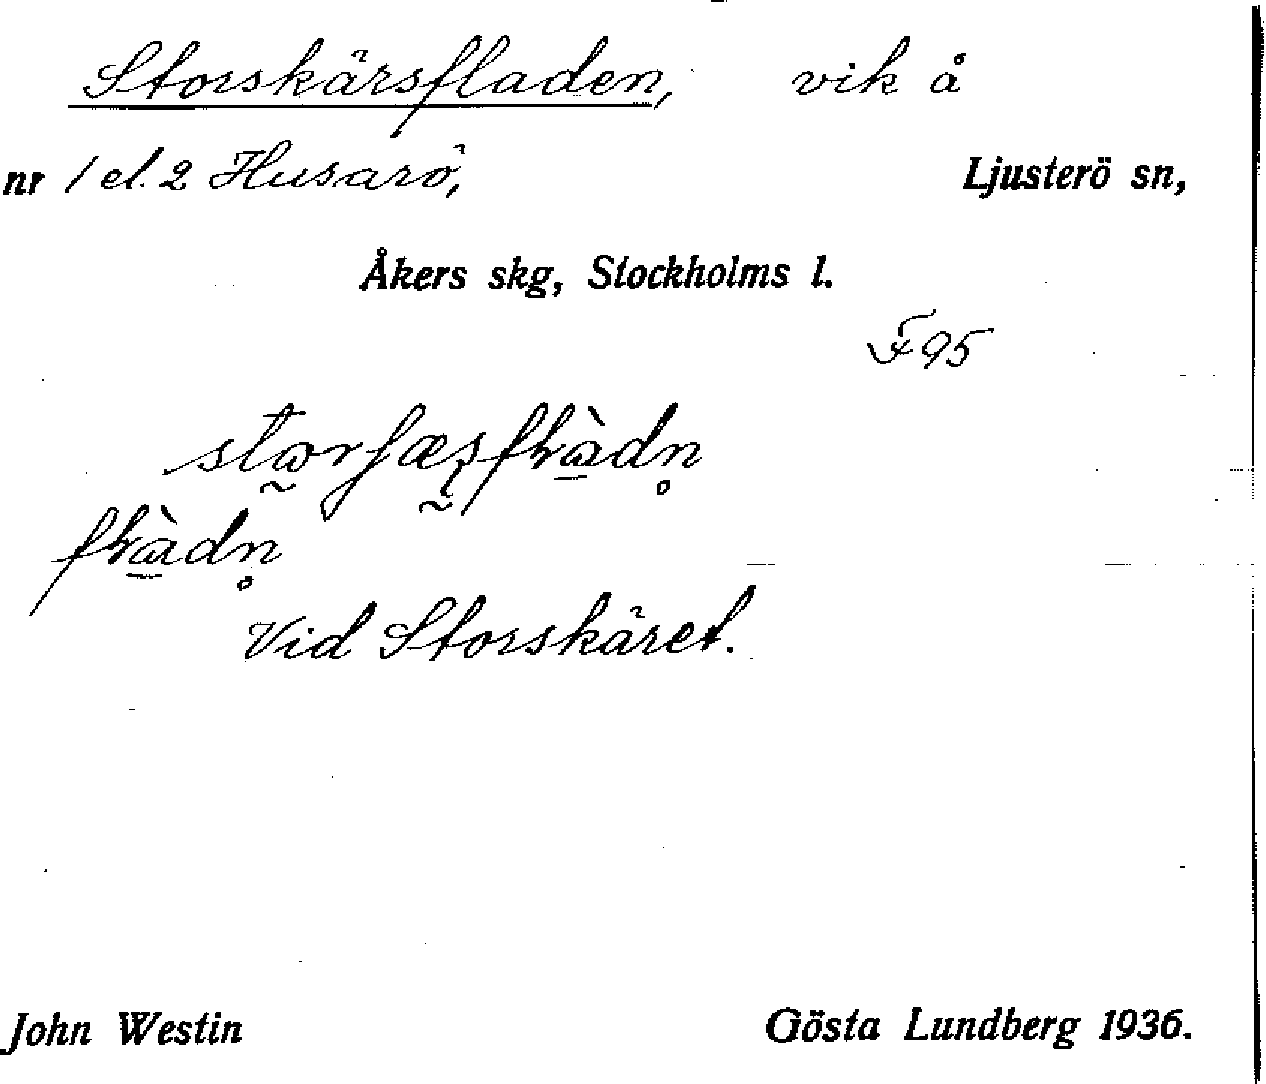 Storskärsfladen, vik å
nr 1 el. 2 Husarö, Ljusterö sn,
Åkers skg, Stockholms l.
F 95
Vid Storskäret.
John Westin Gösta Lundberg 1936.